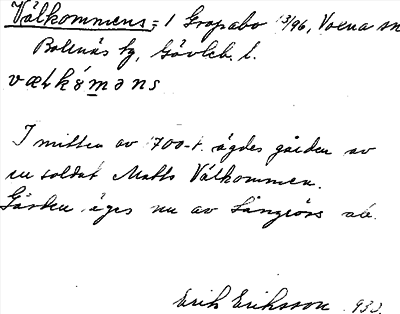 Välkommens, 1 Gropabo 3/96, Voxna sn
Bollnäs fg, Gävleb. l.
välkó̱məns
I mitten av 1700-t. ägdes gården av
en soldat Matts Välkommen.
Gården äges nu av Långrörs ab.
Erik Eriksson 1932.